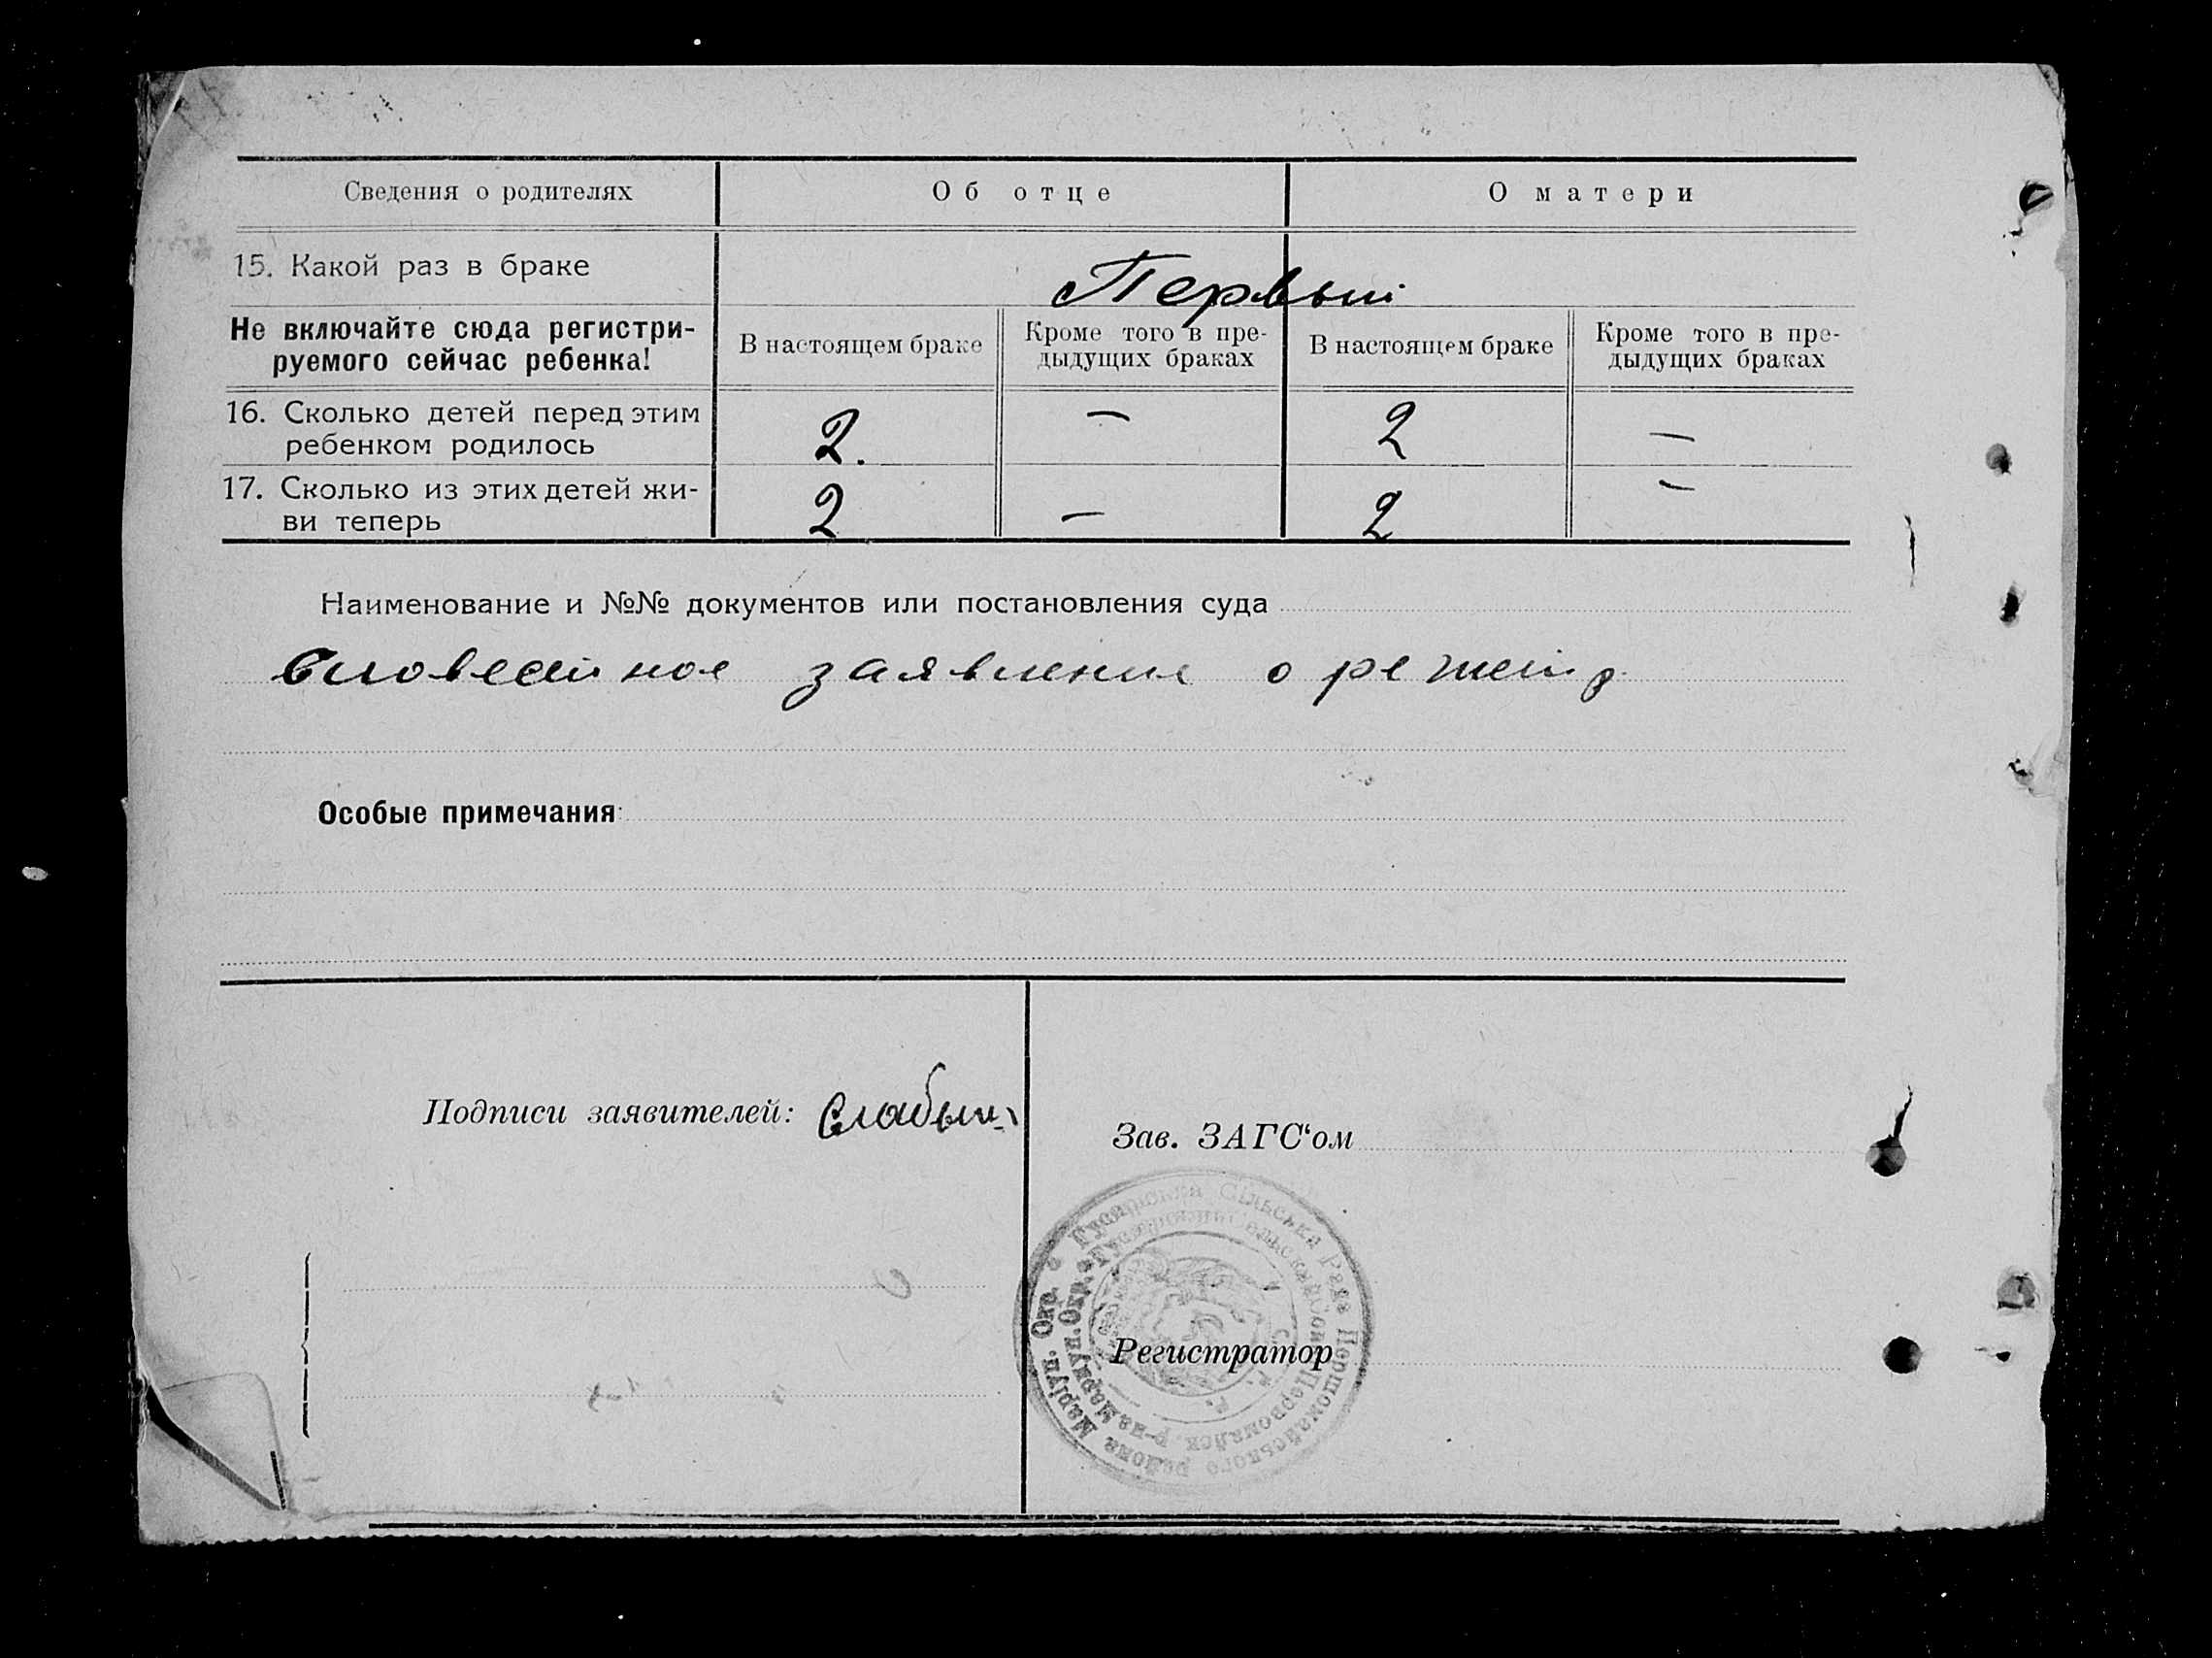 Сведения о родителях
Об отце
О матери
15. Какой раз в браке
Первый
Не включайте сюда регистри-
руемого сейчас ребенка!
В настоящем браке
Кроме того в пре-
дыдущих браках
В настоящем браке
Кроме того в пре-
дыдущих браках
16. Сколько детей перед этим
ребенком родилось
2.
—
2
—
17. Сколько из этих детей жи-
ви теперь
2
—
2
—
Наименование и №№ документов или постановления суда
словесное заявление о
Особые примечания:
Подписи заявителей: Слабый
Зав. ЗАГС‘ом
Гусарська Сільська Рада Першомайського района Маріуп. Окр.
Первомайск. р-на Мариуп. Окр.
Регистратор